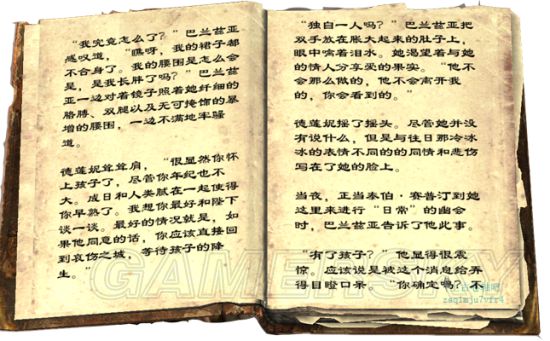 “我究竟怎么了？”巴兰兹亚
感叹道，“瞧呀，我的裙子都
不合身了。我的腰围是怎么会
是，是我长胖了吗？”巴兰兹
亚一边对着镜子照着她纤细的
胳膊、双腿以及无可掩饰的暴
增的腰围，一边不满地牢骚
道。
德莲妮耸耸肩，“很显然你怀
上孩子了，尽管你年纪也不
大。成日和人类腻在一起使得
你早熟了。我想你最好和陛下
谈一谈。最好的情况就是，如
果他同意的话，你应该直接回
到哀伤之城，等待孩子的降
生。”
“独自一人吗？”巴兰兹亚把
双手放在胀大起来的肚子上，
眼中噙着泪水。她渴望着与她
的情人分享爱的果实。“他不
会那么做的，他不会离开我
的，你会看到的。”
德莲妮摇了摇头。尽管她并没
有说什么，但是与往日那冷冰
冰的表情不同的的同情和悲伤
写在了她的脸上。
当夜，正当泰伯·赛普汀到她
这里来进行“日常”的幽会
时，巴兰兹亚告诉了他此事。
“有了孩子？”他显得很震
惊。应该说是被这个消息给弄
得目瞪口呆。“你确定吗？不
GAMERSKY
zaqimju7vfr4